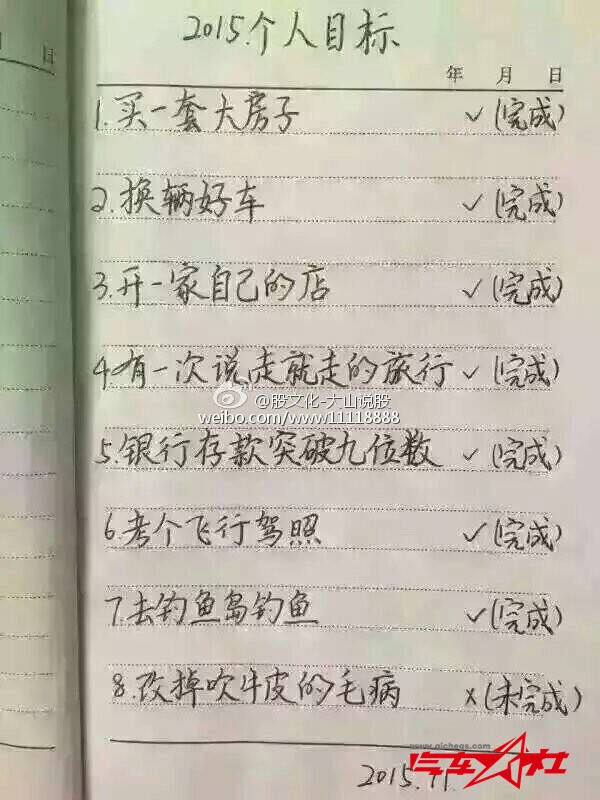 2015.个人目标
日
年 月 日
1.买一套大房子 ✓(完成)
2.换辆好车 ✓(完成)
3.开一家自己的店 ✓(完成)
4.有一次说走就走的旅行 ✓(完成)
@股文化-大山说股
weibo.com/www11118888
5.银行存款突破九位数 ✓(完成)
6.考个飞行驾照 ✓(完成)
7.去钓鱼岛钓鱼 ✓(完成)
8.改掉吹牛皮的毛病 ×(未完成)
www.qichegs.com
汽车公社
2015.11